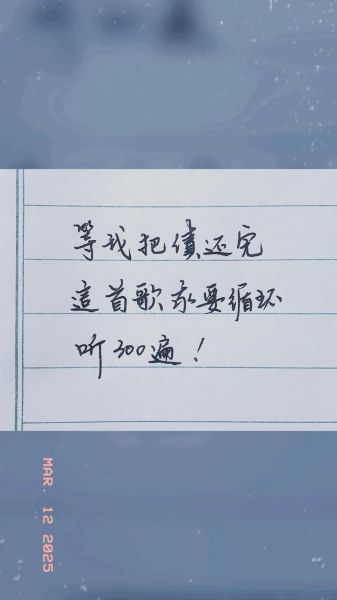 等我把債还完
這首歌我要循环
听300遍！
MAR. 12 2025